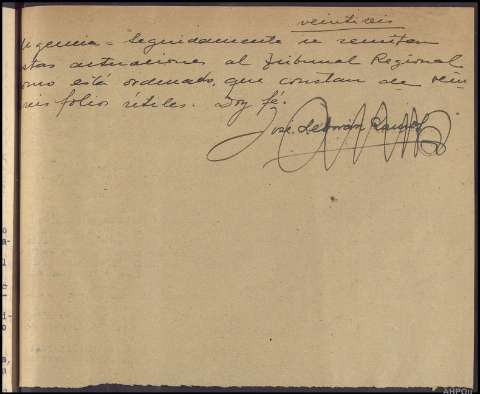 veintiseis
ligencia = Seguidamente se remiten
stas actuaciones al Tribunal Regional
omo está ordenado, que constan de vein
seis folios útiles. Doy fé.
José
AHPOu